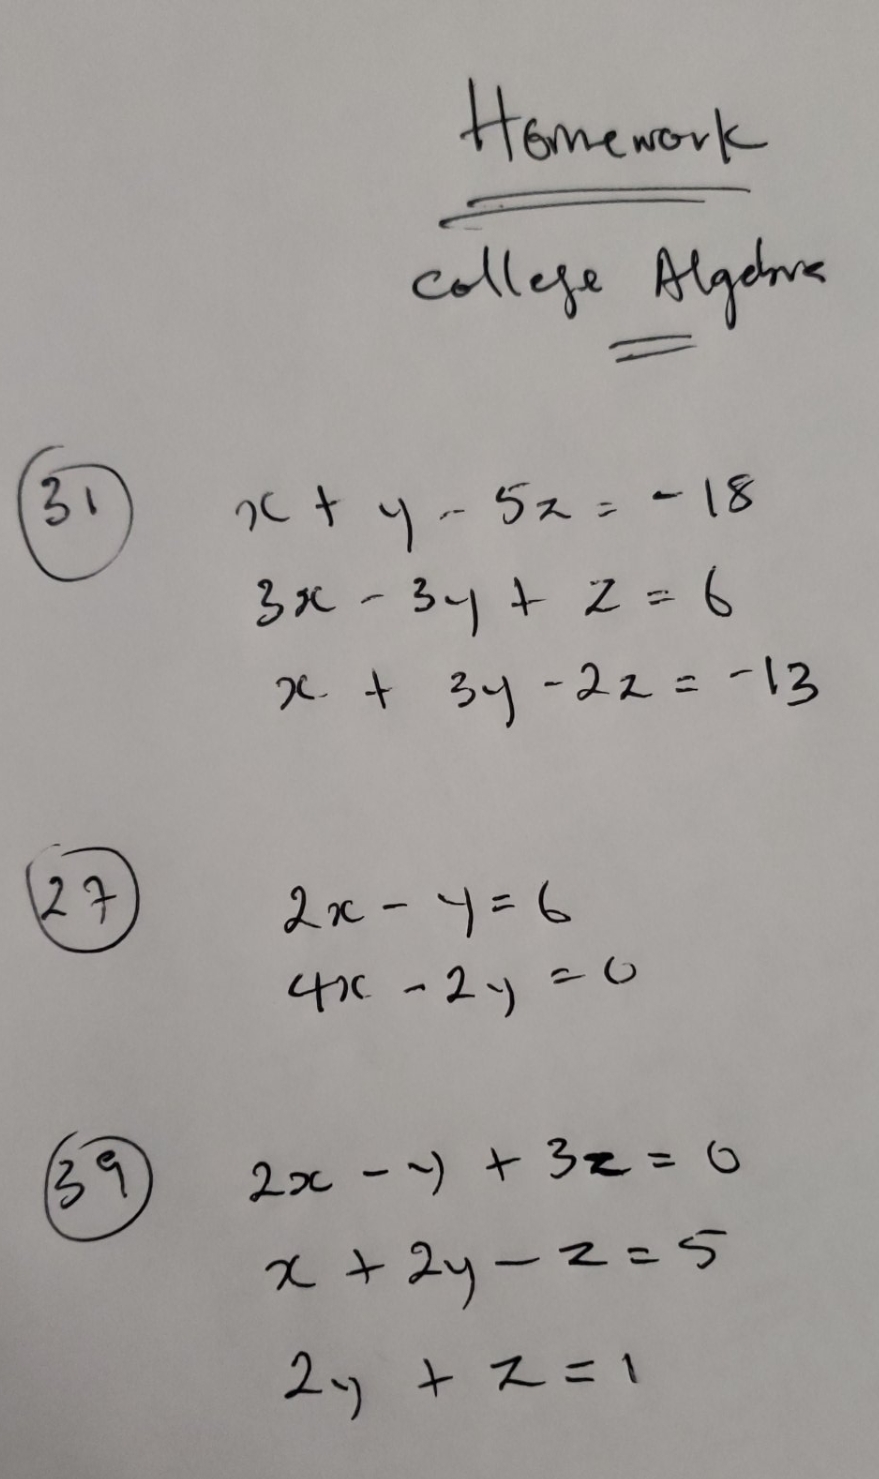 Homework
college Algebra
31 x + y - 5z = - 18
3x - 3y + z = 6
x + 3y - 2z = - 13
27 2x - y = 6
4x - 2y = 0
39 2x - y + 3z = 0
x + 2y - z = 5
2y + z = 1